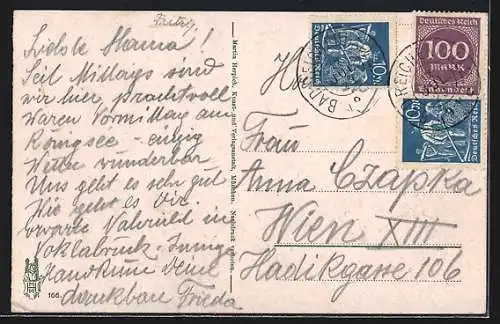 Freitag
Liebste Mama!
Seit Mittags sind
wir hier prachtvoll
waren Vormittag am
Königsee - einzig
Wetter wunderbar
Uns geht es sehr gut
Wie geht es Dir
erwarte Nachricht in
Vöklabruck. Innige
Handküsse Deine
dankbare Frieda
166.
Martin Herpich, Kunst- und Verlagsanstalt, München. Nachdruck verboten.
Deutsches Reich
100
MARK
Deutsches Reich
10
Deutsches Reich
10
Frau
Anna Czapka
Wien XIII
Hadikgasse 106